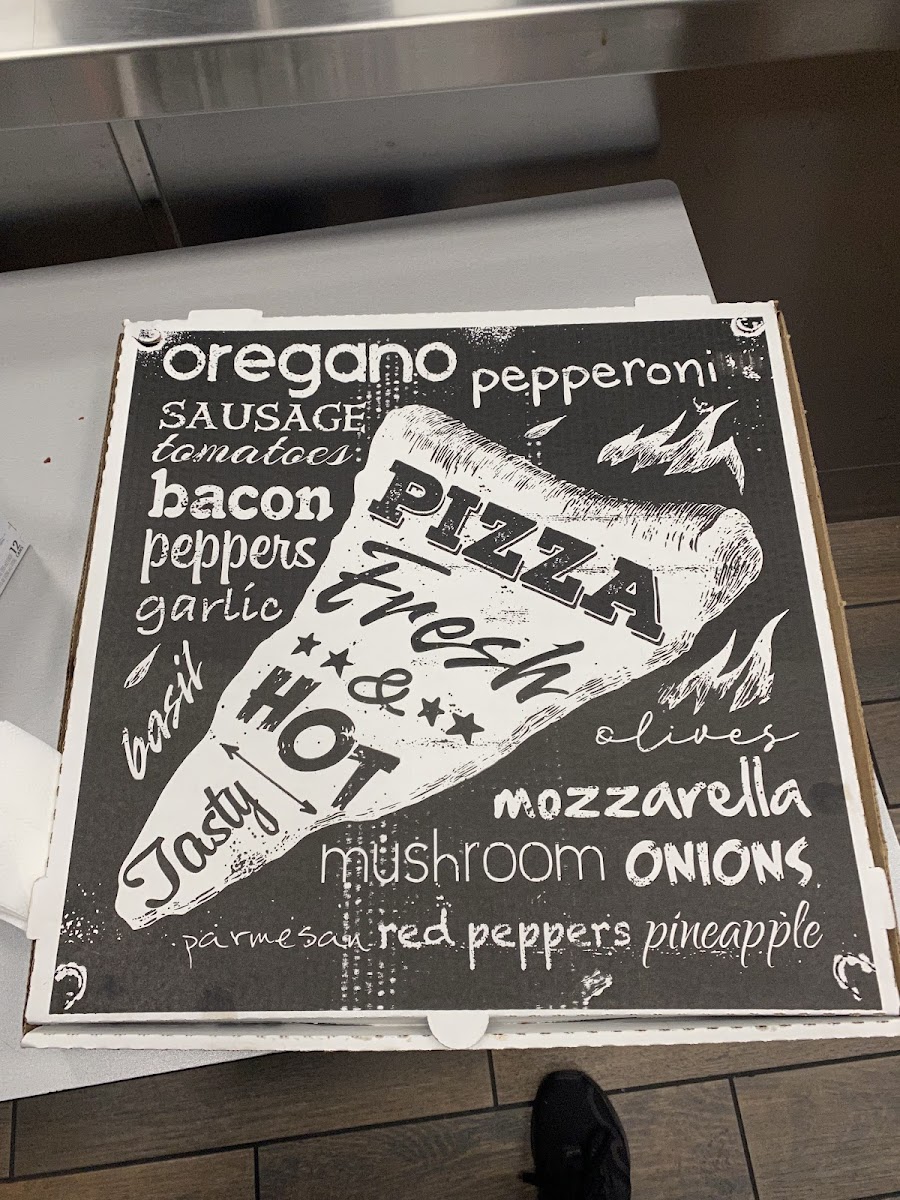 oregano
pepperoni
SAUSAGE
tomatoes
bacon
peppers
garlic
basil
PIZZA
Fresh
&
HOT
Tasty
olives
mozzarella
mushroom ONIONS
parmesan red peppers pineapple
12